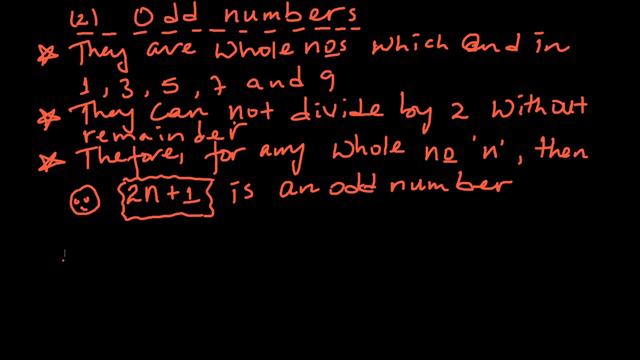 (2) Odd numbers
☆ They are whole nos which end in
1, 3, 5, 7 and 9
☆ They can not divide by 2 without
remainder
☆ Therefore, for any whole no 'n', then
2n+1 is an odd number